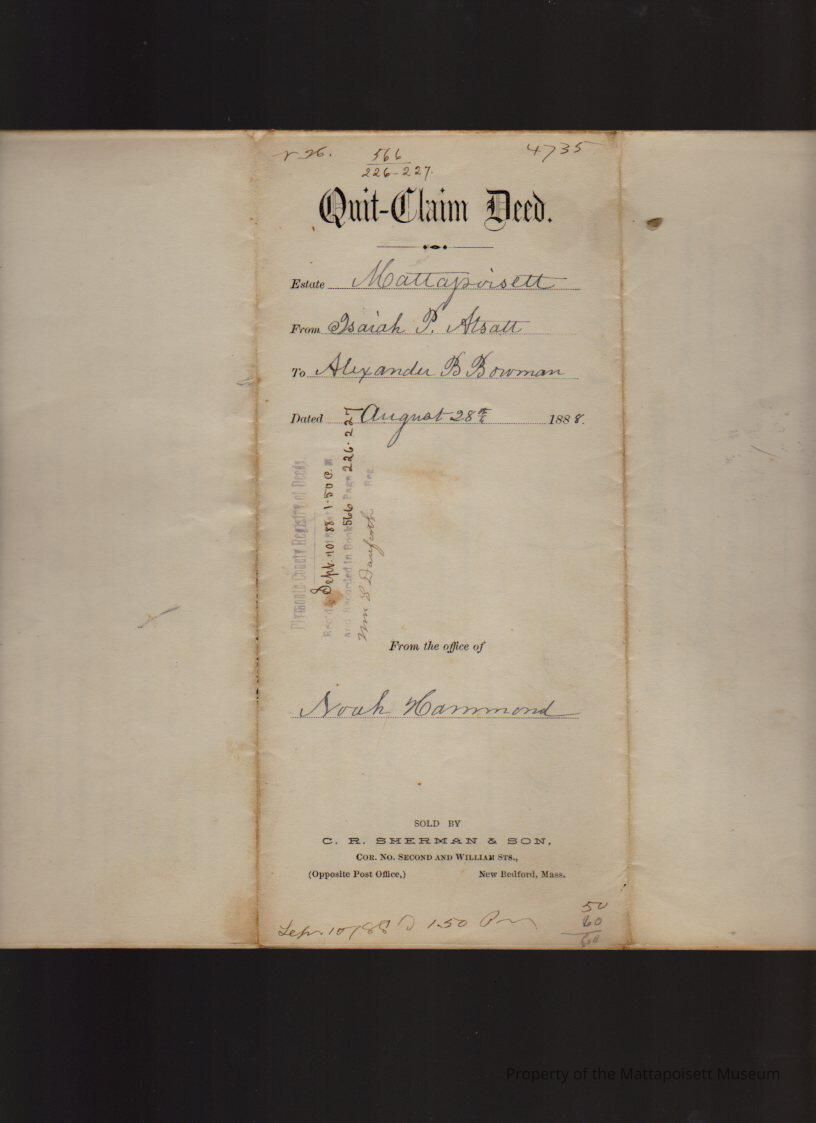 566
4735
226-227.
Quit-Claim Deed.
Estate Mattapoisett
From Isaiah P. Atsatt
To Alexander B Bowman
Dated August 28th 1888.
Plymouth County Registry of Deeds.
Sept. 10 1888 1-50 P. M
and Recorded in Book 566 Page 226-227
Wm S Danforth Reg.
From the office of
Noah Hammond
SOLD BY
C. R. SHERMAN & SON,
COR. NO. SECOND AND WILLIAM STS.,
(Opposite Post Office,) New Bedford, Mass.
Sep. 10/88 1.50 Pm
50
60
Property of the Mattapoisett Museum